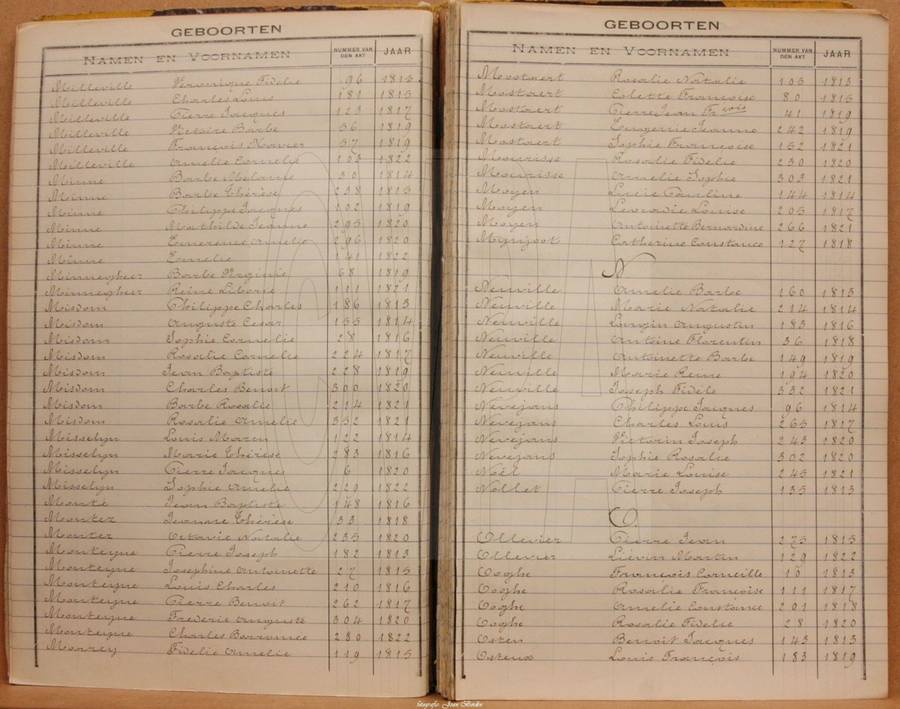 GEBOORTEN
NAMEN EN VOORNAMEN NUMMER VAN DEN AKT JAAR
Milleville Veronique Fidelie 96 1815
Milleville Charles Louis 181 1815
Milleville Pierre Jacques 123 1817
Milleville Victoire Barbe 56 1819
Milleville François Xavier 57 1819
Milleville Amelie Cornelie 103 1822
Minne Barbe Melanie 30 1814
Minne Barbe Thérèse 258 1815
Minne Philippe Jacques 102 1819
Minne Mathilde Jeanne 295 1820
Minne Emerence Amelie 296 1820
Minne Emelie 141 1822
Minnegheer Barbe Virginie 68 1819
Minnegheer Reine Liborie 111 1821
Misdom Philippe Charles 186 1813
Misdom Auguste Cesar 155 1814
Misdom Sophie Cornelie 28 1816
Misdom Rosalie Cornelie 224 1817
Misdom Jean Baptiste 228 1819
Misdom Charles Benoit 300 1820
Misdom Barbe Rosalie 214 1821
Misdom Rosalie Amelie 352 1821
Misselyn Louis 122 1814
Misselyn Marie Thérèse 283 1816
Misselyn Pierre Jacques 6 1820
Misselyn Sophie Amelie 229 1822
Monté Jean Baptiste 148 1816
Montez Jeanne Thérèse 33 1818
Montez Octavie Natalie 235 1820
Monteyne Pierre Joseph 182 1813
Monteyne Josephine Antoinette 27 1815
Monteyne Louis Charles 210 1816
Monteyne Pierre Benoit 262 1817
Monteyne Frederic Auguste 304 1820
Monteyne Charles Borromée 280 1822
Fidelie Amelie 119 1815
GEBOORTEN
NAMEN EN VOORNAMEN NUMMER VAN DEN AKT JAAR
Mostaert Rosalie Natalie 105 1813
Mostaert Colette Françoise 80 1815
Mostaert Pierre Jean Frçois 41 1819
Mostaert Jeanne 242 1819
Mostaert Sophie Françoise 152 1821
Mourisse Rosalie Fidelie 230 1820
Mourisse Amelie Sophie 303 1821
Moyen Lucie Pauline 144 1814
Moyen Leocadie Louise 205 1817
Moyen Antoinette Bernardine 266 1821
Catherine Constance 127 1818
N
Neuville Amelie Barbe 160 1813
Neuville Marie Natalie 214 1814
Neuville Longin Augustin 183 1816
Neuville Antoine Florentin 36 1818
Neuville Antoinette Barbe 149 1819
Neuville Marie Reine 194 1820
Neuville Joseph Fidèle 332 1821
Nevejans Philippe Jacques 96 1814
Nevejans Charles Louis 265 1817
Nevejans Victorin Joseph 243 1820
Nevejans Sophie Rosalie 302 1820
Noël Marie Louise 245 1821
Nollet Pierre Joseph 135 1813
O
Ollevier Pierre Jean 275 1815
Ollevier Liévin Martin 129 1822
Ooghe François Corneille 10 1813
Ooghe Rosalie Françoise 111 1817
Ooghe Amelie Constance 201 1818
Ooghe Rosalie Fidelie 28 1820
Osten Benoit Jacques 143 1813
Osteux Louis François 183 1819
fotografie: Joan Bordin